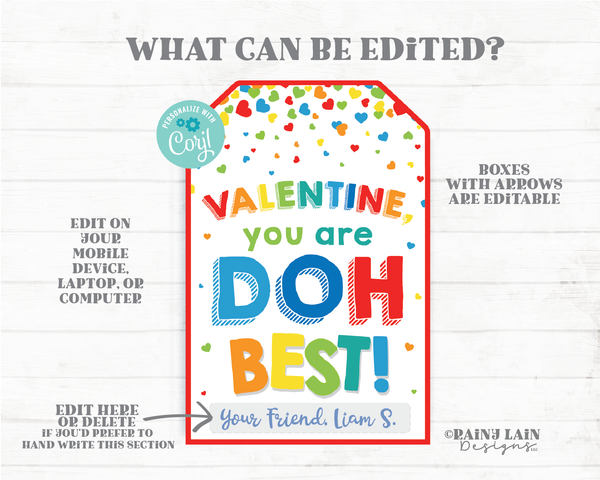 WHAT CAN BE EDITED?
PERSONALIZE WITH
Corjl
VALENTINE,
you are
DOH
BEST!
Your Friend, Liam S.
EDIT ON
YOUR
MOBILE
DEVICE,
LAPTOP, OR
COMPUTER
BOXES
WITH ARROWS
ARE EDITABLE
EDIT HERE
OR DELETE
IF YOU'D PREFER TO
HAND WRITE THIS SECTION
©RAINY LAIN
Designs LLC